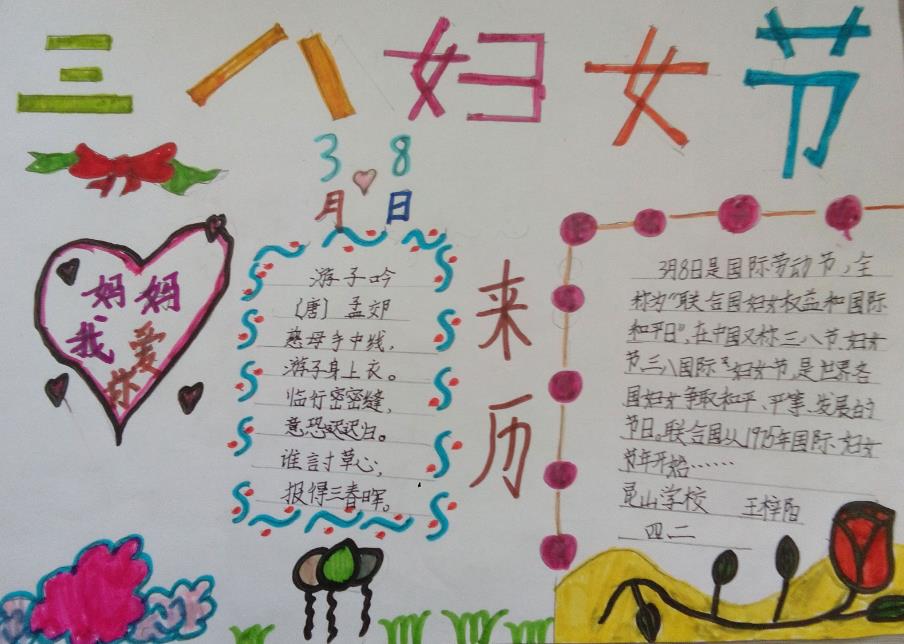 三八妇女节
3 8
月 日
妈妈
我爱
你
游子吟
〔唐〕 孟郊
慈母手中线,
游子身上衣。
临行密密缝,
意恐迟迟归。
谁言寸草心,
报得三春晖。
来历
3月8日是国际劳动节,全
称为“联合国妇女权益和国际
和平日”,在中国又称三八节、妇女
节、三八国际妇女节,是世界各
国妇女争取和平、平等、发展的
节日。联合国从1975年国际妇女
节年开始……
昆山学校 王梓阳
四二